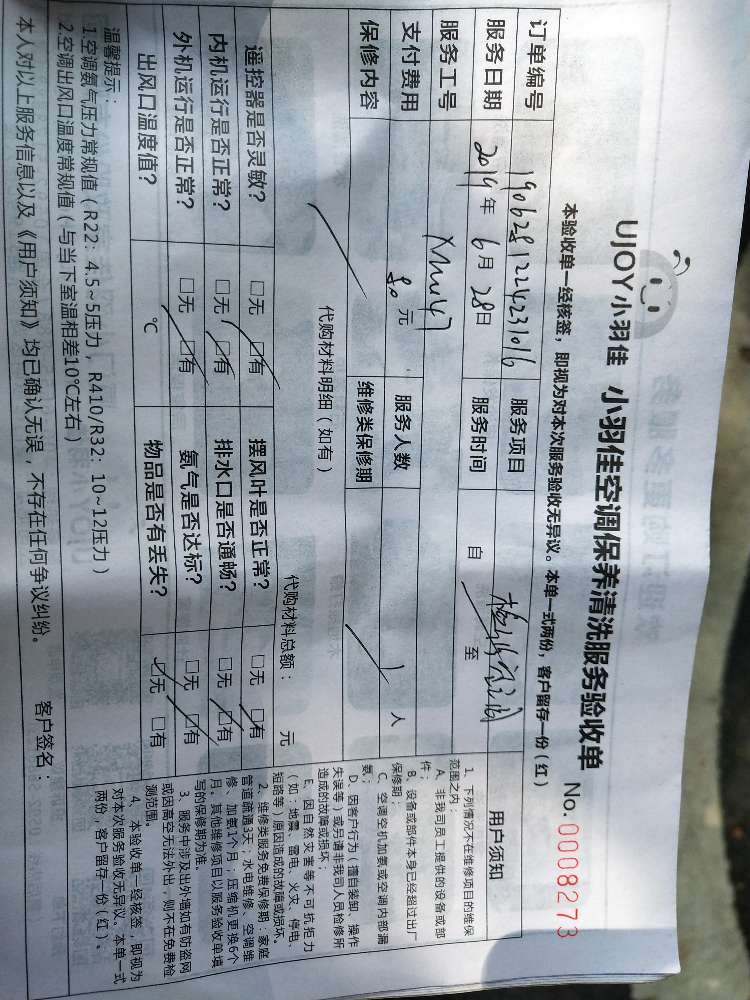 UJOY小羽佳 小羽佳空调保养清洗服务验收单
No.0008273
本验收单一经核签，即视为对本次服务验收无异议。本单一式两份，客户留存一份（红）
订单编号 1906281224231016 服务项目
服务日期 2019年6月28日 服务时间 自 至
服务工号
支付费用 80元 服务人数 1人
保修内容 维修类保修期
代购材料明细（如有） 代购材料总额： 元
遥控器是否灵敏？ □无 □有 摆风叶是否正常？ □无 □有
内机运行是否正常？ □无 □有 排水口是否通畅？ □无 □有
外机运行是否正常？ □无 □有 氨气是否达标？ □无 □有
出风口温度值？ ℃ 物品是否有丢失？ □无 □有
温馨提示：
1.空调氨气压力常规值（R22：4.5~5压力，R410/R32：10~12压力）
2.空调出风口温度常规值（与当下室温相差10℃左右）
本人对以上服务信息以及《用户须知》均已确认无误，不存在任何争议纠纷。 客户签名：
用户须知
1、下列情况不在维修项目的维保
范围之内：
A、非我司员工提供的设备或部
件；
B、设备或部件本身已经超过出厂
保修期；
C、空调空机加氨或空调内部漏
氨；
D、因客户行为（擅自装卸、操作
失误等）或另请非我司人员检修所
造成的故障或损坏；
E、因自然灾害等不可抗拒力
（如：地震、雷电、火灾、停电、
短路等）原因造成的故障或损坏。
2、维修类服务免费保修期：家庭
管道疏通3天；水电维修、空调维
修、加氨1个月；压缩机更换6个
月。其他维修项目以服务验收单填
写的保修期为准。
3、服务中涉及出外墙如有防盗网
或因高空无法外出，则不在免费检
测范围。
4、本验收单一经核签，即视为
对本次服务验收无异议。本单一式
两份，客户留存一份（红）、